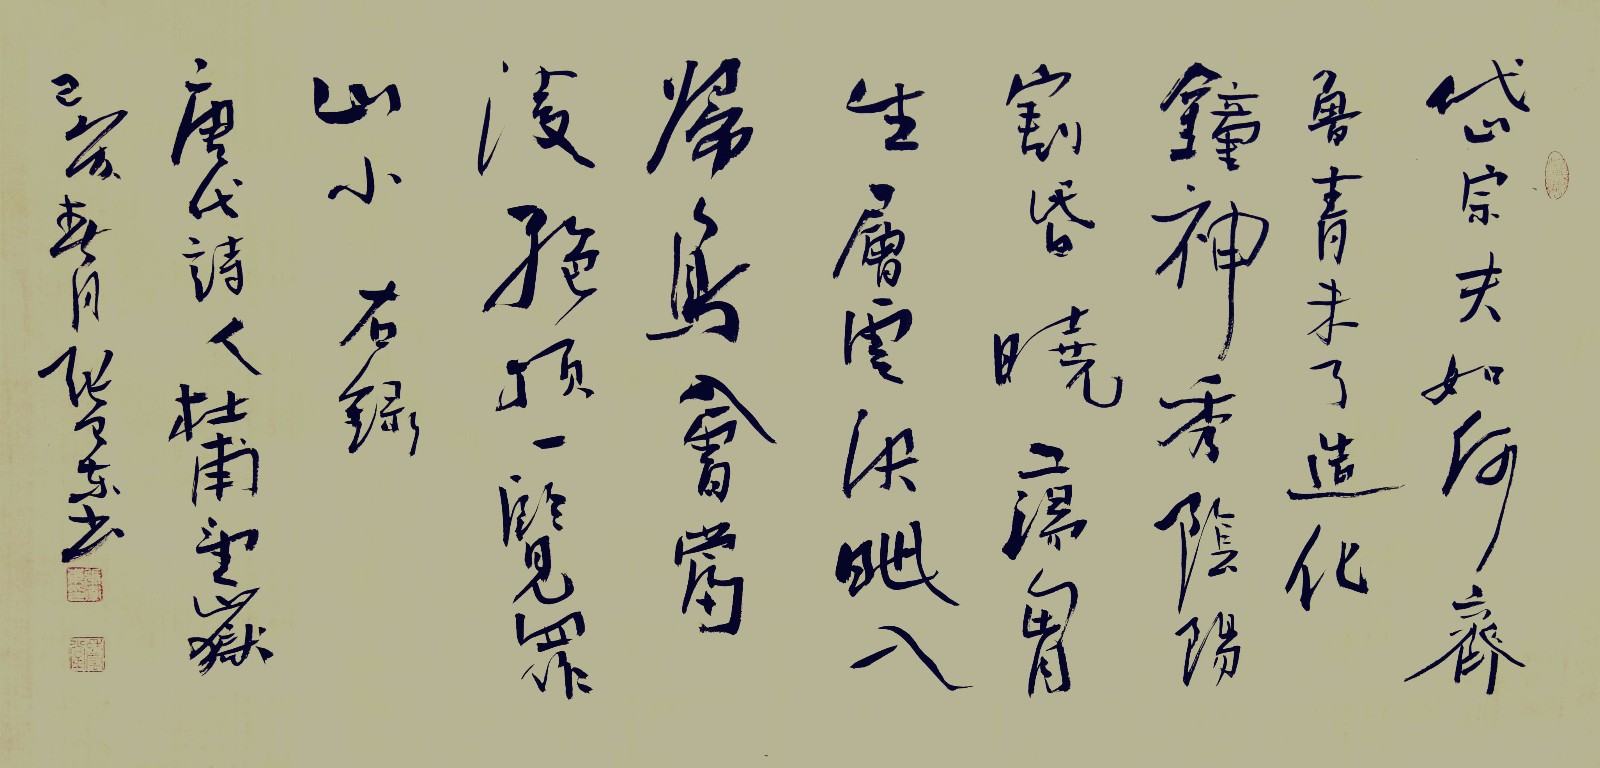 岱宗夫如何齊
魯青未了造化
鐘神秀陰陽
割昏曉蕩胷
生層雲決眦入
歸鳥會當
淩絕頂一覽眾
山小 右錄
唐代詩人杜甫望嶽
己亥春月張東書